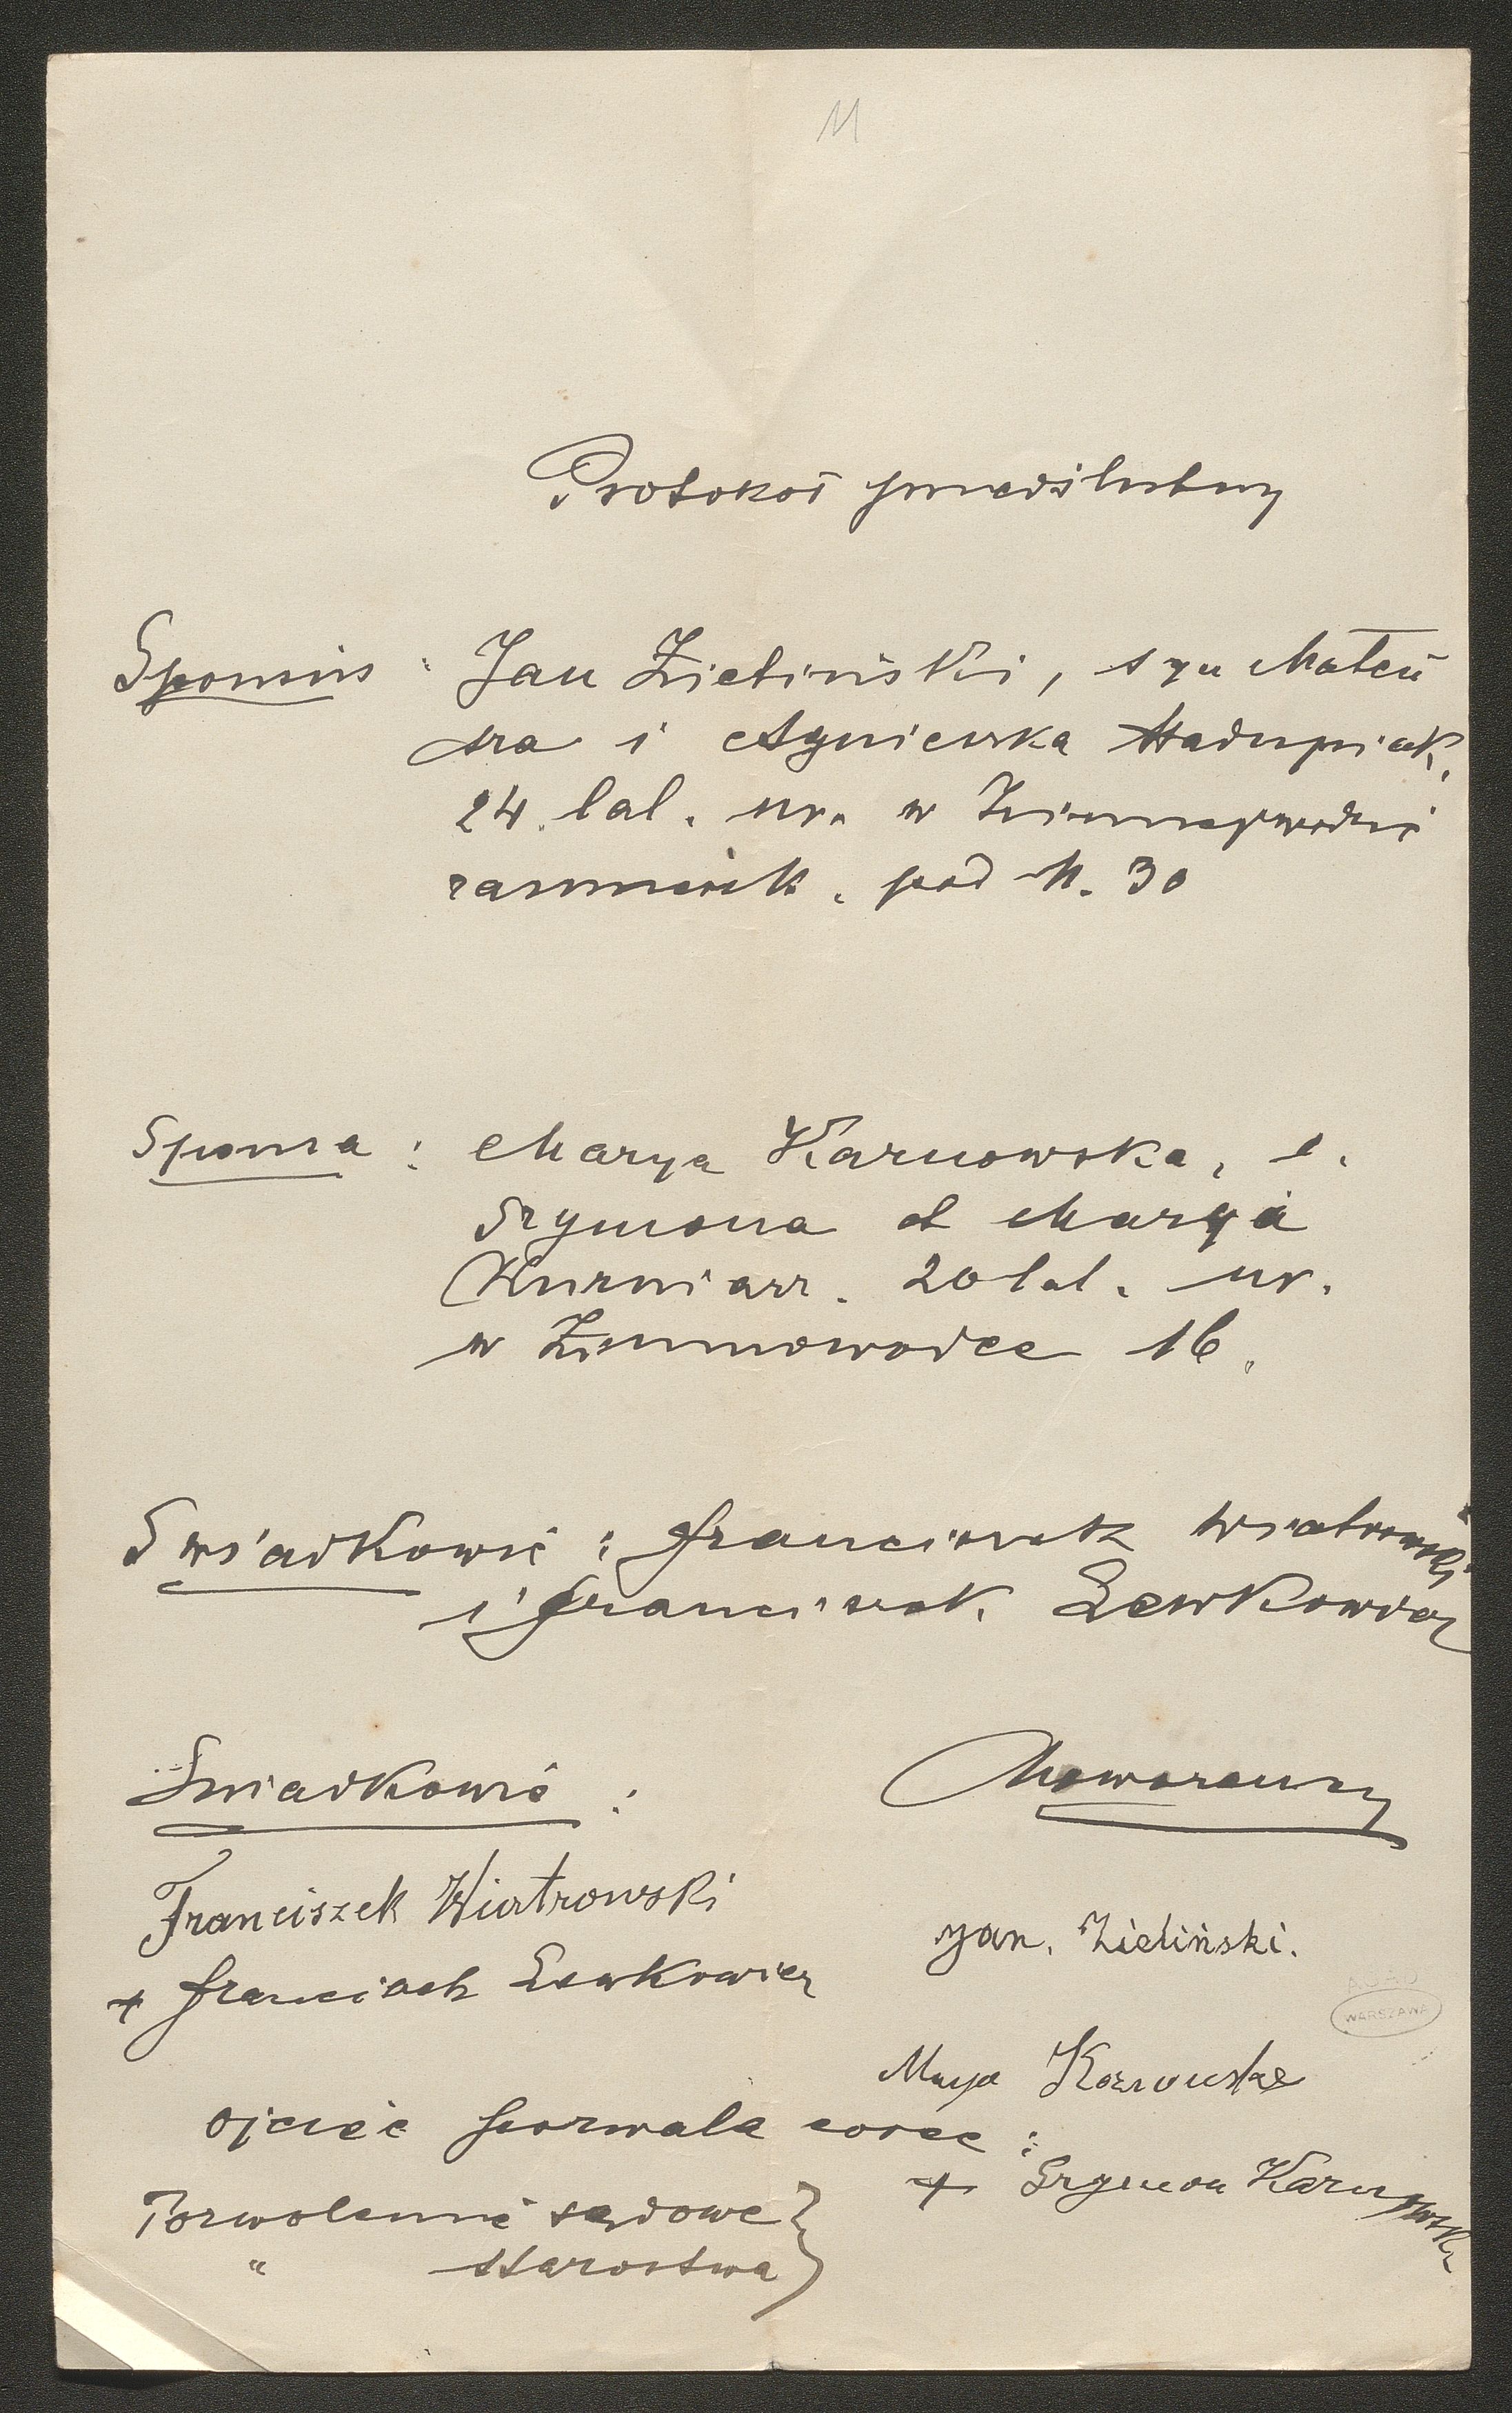 11
Protokoł przedślubny
Sponsus : Jan Zieliński, syn Mateu
sza i Agnieszka
24. lat. ur. w Zimnejwodzie
zamieszk. pod N. 30
Sponsa : Marya Karnowska, c.
Szymona et Marya
Kuźniarz. 20 lat. ur.
w Zimnowodce 16.
Swiadkowie : Franciszek Wiatrowski
i Franciszek Lewkowicz
Swiadkowie :
Nowożeńcy
Franciszek Wiatrowski
Jan. Zieliński.
+ Franciszek Lewkowicz
AGAD
WARSZAWA
Marya Karnowska
Ojciec pozwala corce :
+ Szymon Karnowski
Pozwolenie sądowe }
" starostwa }